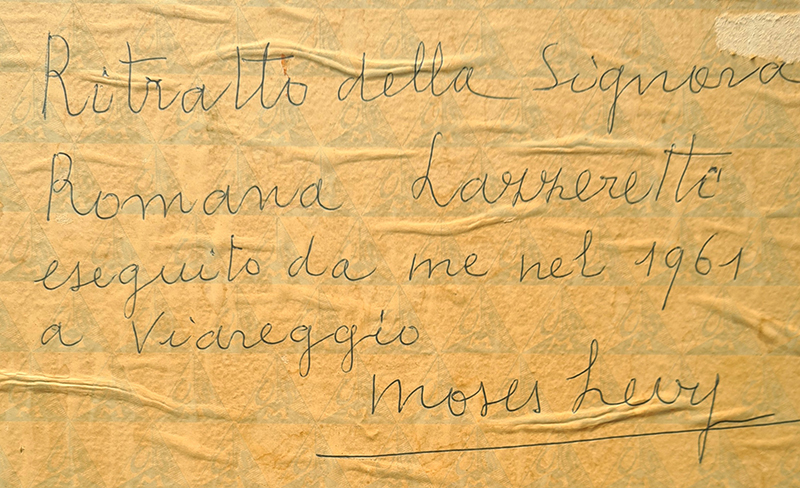 Ritratto della Signora
Romana Lazzeretti
eseguito da me nel 1961
a Viareggio
Moses Levy